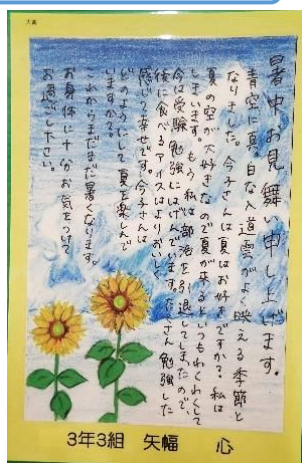 大賞
暑中お見舞い申し上げます。
青空に真っ白な入道雲がよく映える季節と
なりました。今子さんは夏はお好きですか？私は
夏の空が大好きなので夏が来るといつもわくわくして
しまいます。もう私は部活を引退してしまたので、
今は受験勉強にはげんでいます。たくさん勉強した
後に食べるアイスはよりおいしく
感じて幸せです。今子さんは
どのようにして夏を楽しんで
いますか？
これからまだまだ暑くなります。
お身体に十分お気をつけて
お過ごし下さい。
3年3組 矢幅 心